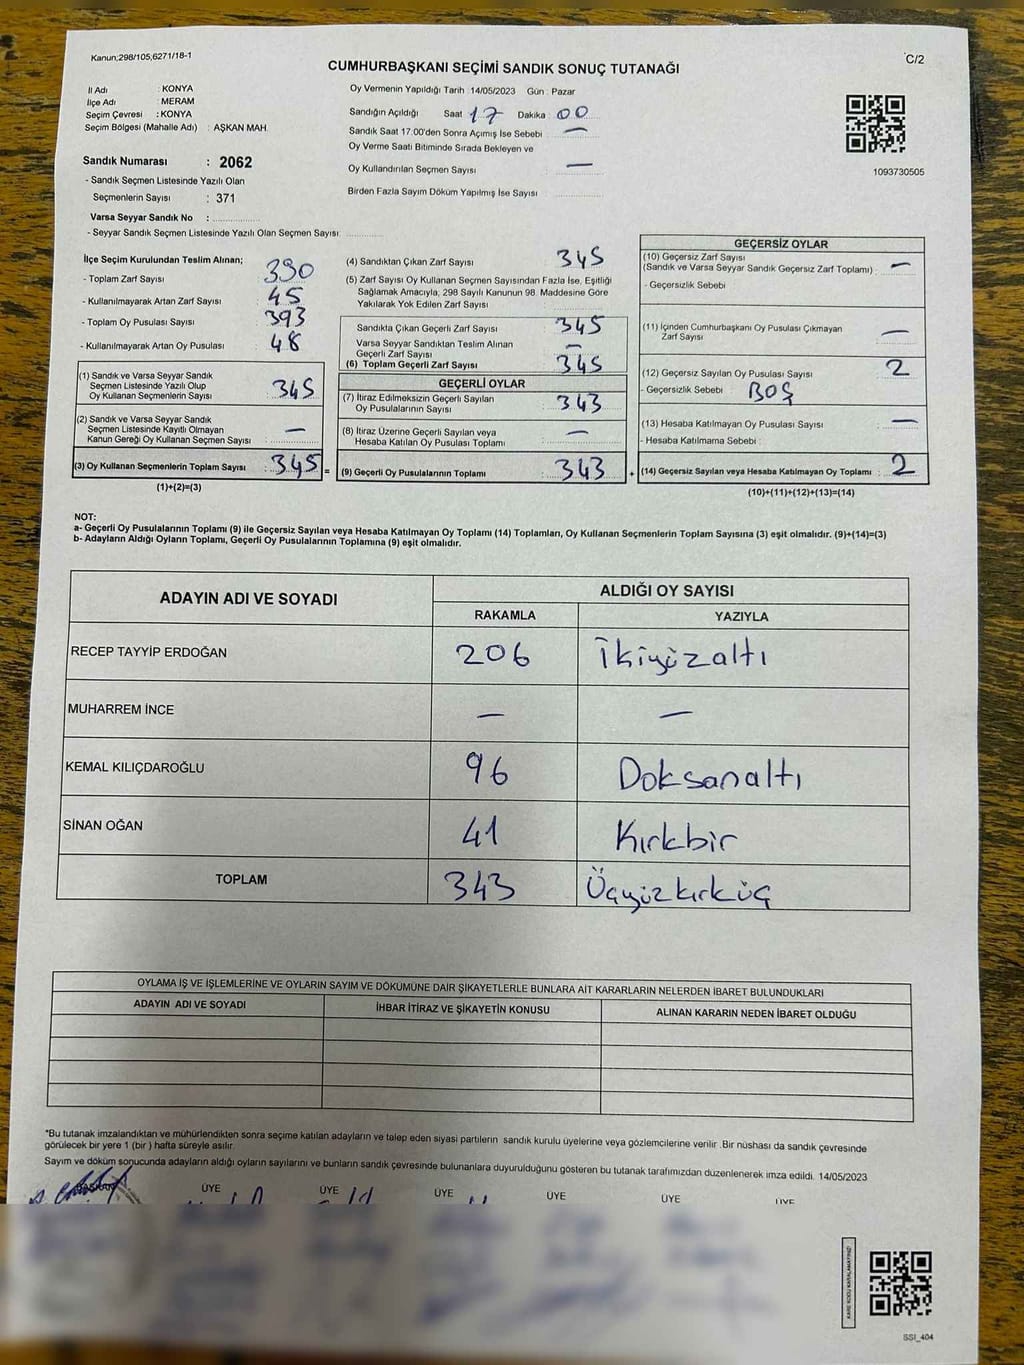 Kanun;298/105,6271/18-1
C/2
CUMHURBAŞKANI SEÇİMİ SANDIK SONUÇ TUTANAĞI
İl Adı : KONYA
İlçe Adı : MERAM
Seçim Çevresi : KONYA
Seçim Bölgesi (Mahalle Adı) : AŞKAN MAH.
Sandık Numarası : 2062
- Sandık Seçmen Listesinde Yazılı Olan
Seçmenlerin Sayısı : 371
Varsa Seyyar Sandık No :
- Seyyar Sandık Seçmen Listesinde Yazılı Olan Seçmen Sayısı:
Oy Vermenin Yapıldığı Tarih : 14/05/2023 Gün : Pazar
Sandığın Açıldığı Saat : 17 Dakika : 00
Sandık Saat 17.00'den Sonra Açımış İse Sebebi : —
Oy Verme Saati Bitiminde Sırada Bekleyen ve
Oy Kullandırılan Seçmen Sayısı : —
Birden Fazla Sayım Döküm Yapılmış İse Sayısı :
1093730505
İlçe Seçim Kurulundan Teslim Alınan;
- Toplam Zarf Sayısı : 390
- Kullanılmayarak Artan Zarf Sayısı : 45
- Toplam Oy Pusulası Sayısı : 393
- Kullanılmayarak Artan Oy Pusulası : 48
(1) Sandık ve Varsa Seyyar Sandık
Seçmen Listesinde Yazılı Olup
Oy Kullanan Seçmenlerin Sayısı : 345
(2) Sandık ve Varsa Seyyar Sandık
Seçmen Listesinde Kayıtlı Olmayan
Kanun Gereği Oy Kullanan Seçmen Sayısı : —
(3) Oy Kullanan Seçmenlerin Toplam Sayısı : 345 =
(1)+(2)=(3)
(4) Sandıktan Çıkan Zarf Sayısı : 345
(5) Zarf Sayısı Oy Kullanan Seçmen Sayısından Fazla İse, Eşitliği
Sağlamak Amacıyla, 298 Sayılı Kanunun 98. Maddesine Göre
Yakılarak Yok Edilen Zarf Sayısı :
Sandıkta Çıkan Geçerli Zarf Sayısı : 345
Varsa Seyyar Sandıktan Teslim Alınan
Geçerli Zarf Sayısı : —
(6) Toplam Geçerli Zarf Sayısı : 345
GEÇERLİ OYLAR
(7) İtiraz Edilmeksizin Geçerli Sayılan
Oy Pusulalarının Sayısı : 343
(8) İtiraz Üzerine Geçerli Sayılan veya
Hesaba Katılan Oy Pusulası Toplamı : —
(9) Geçerli Oy Pusulalarının Toplamı : 343 +
GEÇERSİZ OYLAR
(10) Geçersiz Zarf Sayısı
(Sandık ve Varsa Seyyar Sandık Geçersiz Zarf Toplamı) : —
- Geçersizlik Sebebi :
(11) İçinden Cumhurbaşkanı Oy Pusulası Çıkmayan
Zarf Sayısı : —
(12) Geçersiz Sayılan Oy Pusulası Sayısı : 2
- Geçersizlik Sebebi : BOŞ
(13) Hesaba Katılmayan Oy Pusulası Sayısı : —
- Hesaba Katılmama Sebebi :
(14) Geçersiz Sayılan veya Hesaba Katılmayan Oy Toplamı : 2
(10)+(11)+(12)+(13)=(14)
NOT:
a- Geçerli Oy Pusulalarının Toplamı (9) ile Geçersiz Sayılan veya Hesaba Katılmayan Oy Toplamı (14) Toplamları, Oy Kullanan Seçmenlerin Toplam Sayısına (3) eşit olmalıdır. (9)+(14)=(3)
b- Adayların Aldığı Oyların Toplamı, Geçerli Oy Pusulalarının Toplamına (9) eşit olmalıdır.
ADAYIN ADI VE SOYADI ALDIĞI OY SAYISI
RAKAMLA YAZIYLA
RECEP TAYYİP ERDOĞAN 206 İkiyüzaltı
MUHARREM İNCE — —
KEMAL KILIÇDAROĞLU 96 Doksanaltı
SİNAN OĞAN 41 Kırkbir
TOPLAM 343 Üçyüzkırküç
OYLAMA İŞ VE İŞLEMLERİNE VE OYLARIN SAYIM VE DÖKÜMÜNE DAİR ŞİKAYETLERLE BUNLARA AİT KARARLARIN NELERDEN İBARET BULUNDUKLARI
ADAYIN ADI VE SOYADI İHBAR İTİRAZ VE ŞİKAYETİN KONUSU ALINAN KARARIN NEDEN İBARET OLDUĞU
*Bu tutanak imzalandıktan ve mühürlendikten sonra seçime katılan adayların ve talep eden siyasi partilerin sandık kurulu üyelerine veya gözlemcilerine verilir. Bir nüshası da sandık çevresinde
görülecek bir yere 1 (bir ) hafta süreyle asılır.
Sayım ve döküm sonucunda adayların aldığı oyların sayılarını ve bunların sandık çevresinde bulunanlara duyurulduğunu gösteren bu tutanak tarafımızdan düzenlenerek imza edildi. 14/05/2023
BAŞKAN ÜYE ÜYE ÜYE ÜYE ÜYE ÜYE
KARE KODU KARALAMAYINIZ!
SSI_404